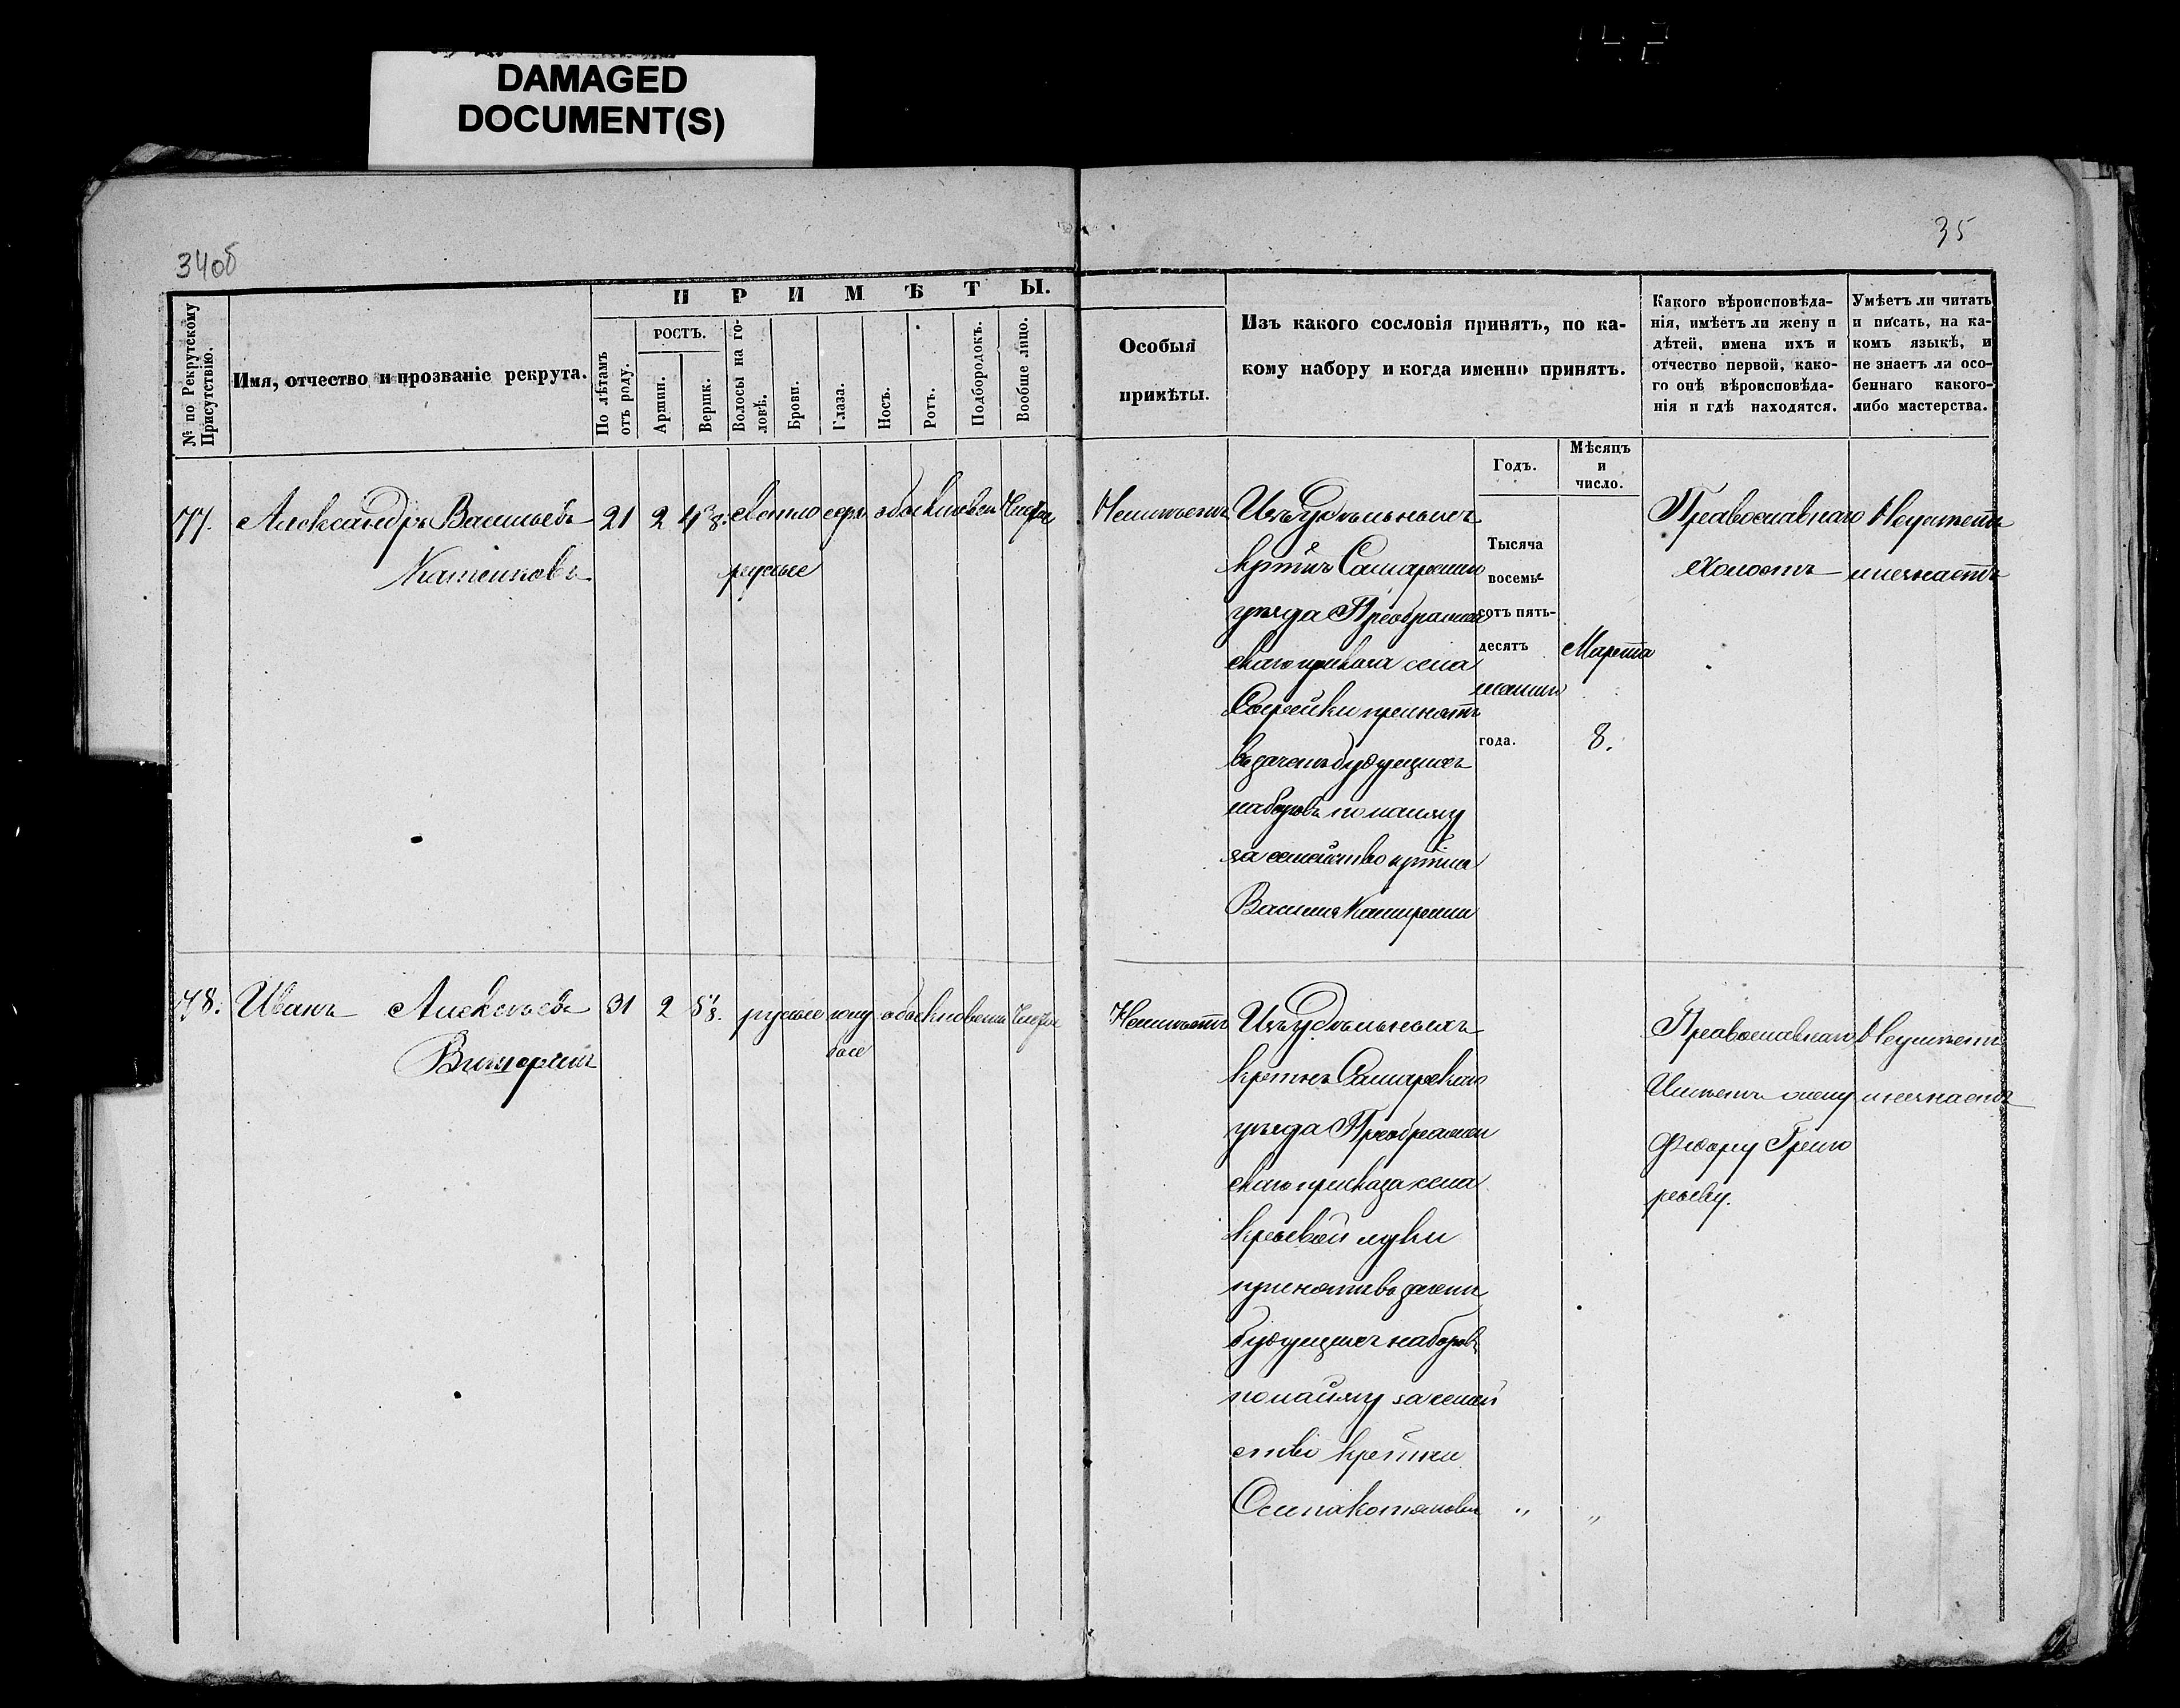 142
DAMAGED
DOCUMENT(S)
34об
35
№ по Рекрутскому Присутствію.
Имя, отчество и прозваніе рекрута.
ПРИМѢТЫ.
По лѣтамъ отъ роду.
РОСТЪ.
Аршин.
Вершк.
Волосы на головѣ.
Брови.
Глаза.
Носъ.
Ротъ.
Подбородокъ.
Вообще лицо.
Особыя
примѣты.
Изъ какого сословія принятъ, по ка-
кому набору и когда именно принятъ.
Годъ.
Мѣсяцъ
и
число.
Какого вѣроисповѣда-
нія, имѣетъ ли жену и
дѣтей, имена ихъ и
отчество первой, како-
го онѣ вѣроисповѣда-
нія и гдѣ находятся.
Умѣетъ ли читать
и писать, на ка-
комъ языкѣ, и
не знаетъ ли осо-
беннаго какого-
либо мастерства.
77. Александръ Васильевъ 21 2 4 3/8. свѣтло серы обыкновен Чистое
русые
Неимѣетъ
Изъ удѣльныхъ
кртнъ Самарскаго
уѣзда Преображен
скаго приказа села
принятъ
въ зачетъ будущихъ
наборовъ по найму
за семейство кртнина
Василия
Тысяча
восемь-
сотъ пять-
десятъ
года.
Марта
8.
Православнаго
Холостъ
Неумѣетъ
и незнаетъ
78. Иванъ Алексѣевъ 31 2 5 1/8. русые голу обыкновенны Чистое
бые
Неимѣетъ
Изъ удѣльныхъ
кретнъ Самарскаго
уѣзда Преображен
скаго приказа села
Кривой луки
принятъ въ зачетъ
будущихъ наборовъ
по найму за семей
ство
Осипа
" "
Православнаго
Имѣетъ жену
Федору Григо
рьеву.
Неумѣетъ
и незнаетъ